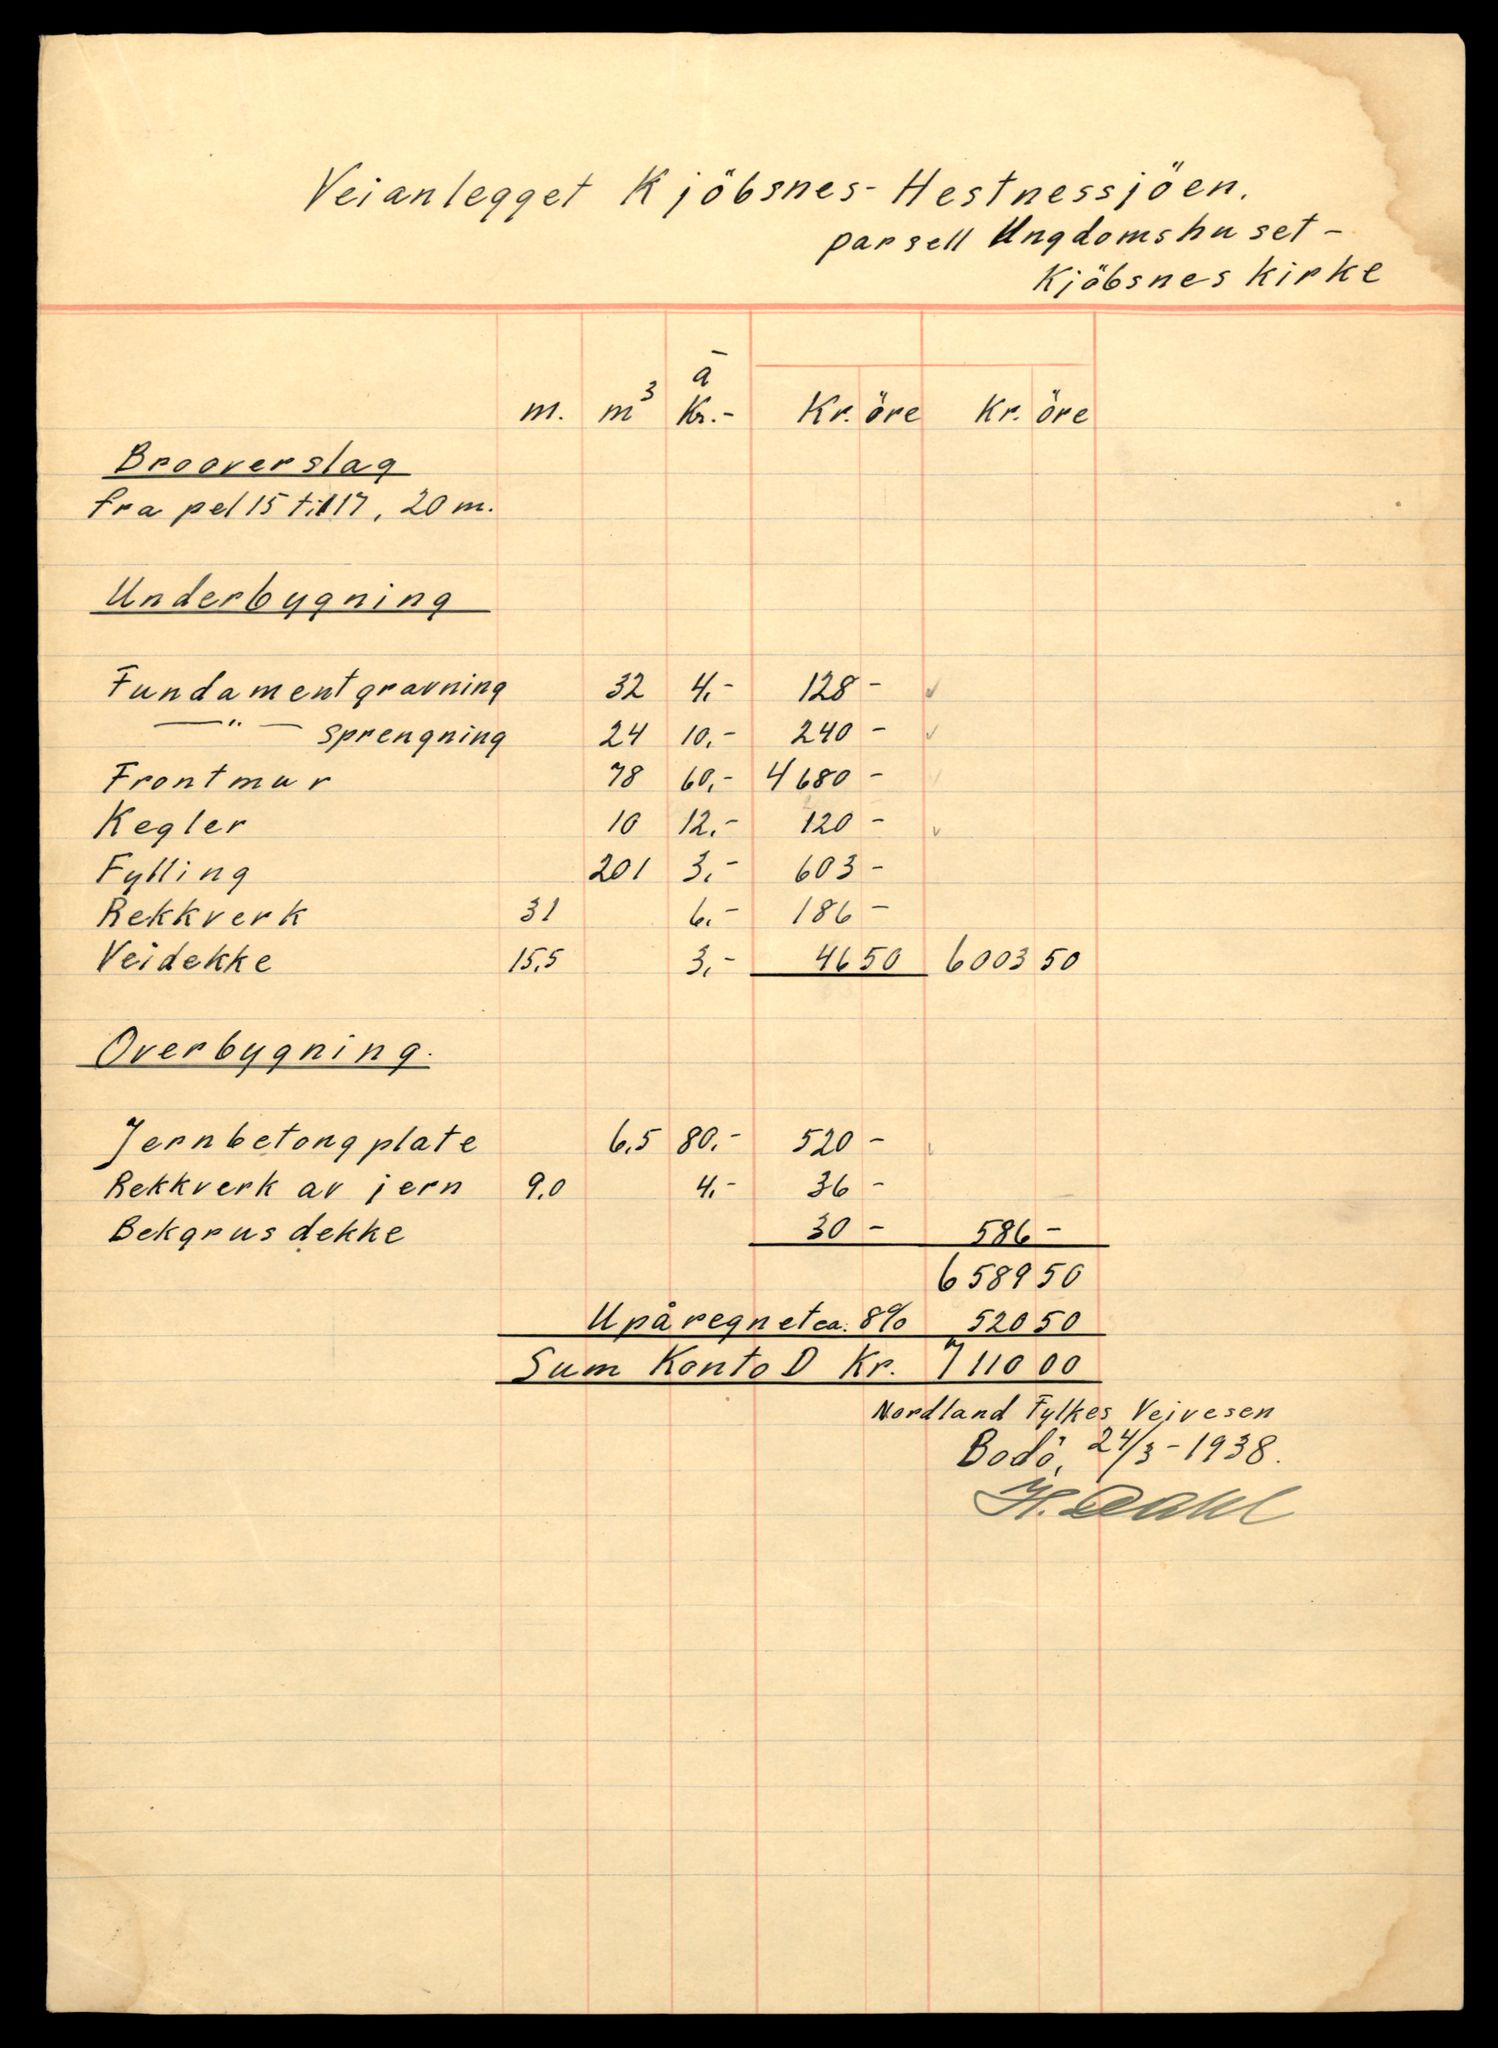 Veianlegget Kjöbsnes - Hestnessjöen.
parsell Ungdomshuset -
Kjöbsnes kirke
m. m³ à Kr.- Kr. öre Kr. öre
Brooverslag
fra pel 15 til 17, 20 m.
Underbygning
Fundamentgravning 32 4,- 128 -
—"— sprengning 24 10,- 240 -
Frontmur 78 60,- 4680 -
Kegler 10 12,- 120 -
Fylling 201 3,- 603 -
Rekkverk 31 6,- 186 -
Veidekke 15,5 3,- 46 50 6003 50
Overbygning.
Jernbetongplate 6,5 80,- 520 -
Rekkverk av jern 9,0 4,- 36 -
Bekgrusdekke 30 - 586 -
6589 50
Upåregnet ca. 8% 520 50
Sum Konto D Kr. 7110 00
Nordland Fylkes Veivesen
Bodö, 24/3 - 1938.
H. Dahl